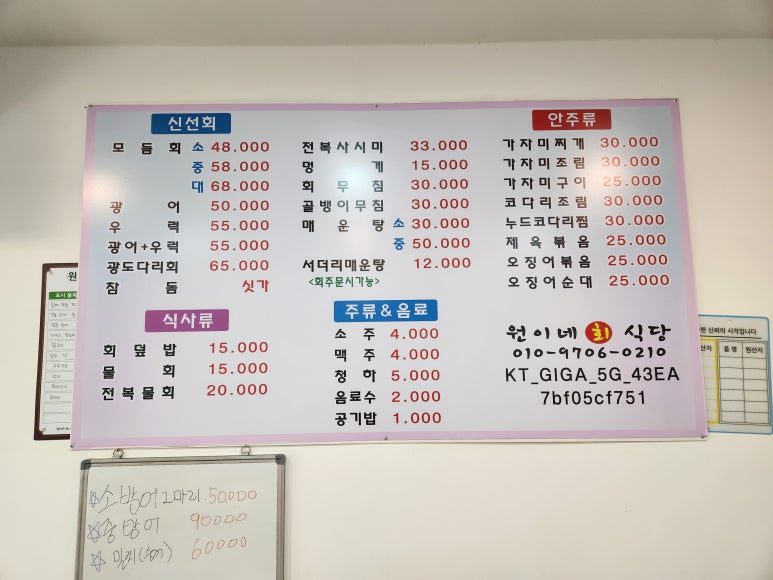 신선회
모듬회 소 48.000
중 58.000
대 68.000
광어 50.000
우럭 55.000
광어+우럭 55.000
광도다리회 65.000
참돔 싯가
전복사시미 33.000
멍게 15.000
회무침 30.000
골뱅이무침 30.000
매운탕 소 30.000
중 50.000
서더리매운탕 12.000
<회주문시가능>
안주류
가자미찌개 30.000
가자미조림 30.000
가자미구이 25.000
코다리조림 30.000
누드코다리찜 30.000
제육볶음 25.000
오징어볶음 25.000
오징어순대 25.000
식사류
회덮밥 15.000
물회 15.000
전복물회 20.000
주류&음료
소주 4.000
맥주 4.000
청하 5.000
음료수 2.000
공기밥 1.000
원이네 회 식당
010-9706-0210
KT_GIGA_5G_43EA
7bf05cf751
원
표시 품목
한 신뢰의 시작입니다
산지 품명 원산지
소방어 1마리 50.000
중방어 90000
밀치(숭어) 60000